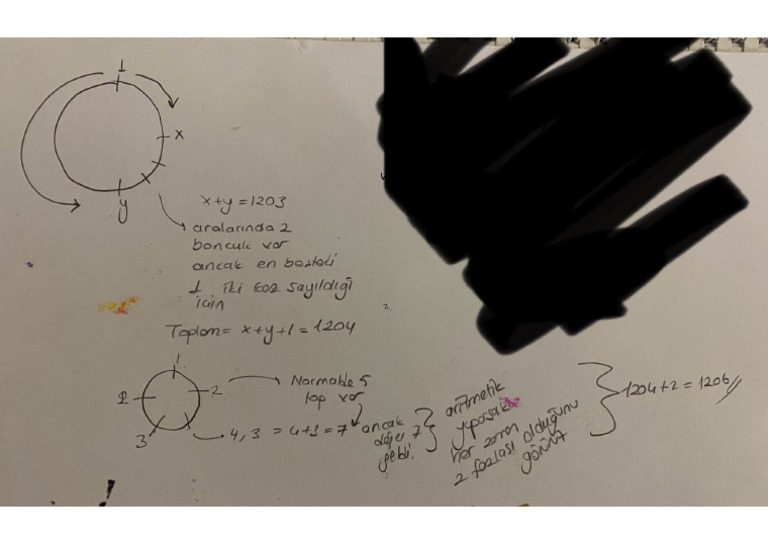 1
x
y
x+y=1203
aralarında 2
boncuk var
ancak en baştaki
1 iki kez sayıldığı
için
Toplam= x+y+1=1204
1
2
2
3
Normalde 5
top var
4,3 = 4+3=7
ancak
7
geldi.
aritmetik
yaparsak
her zaman
2 fazlası olduğunu
görürüz
1204+2=1206//